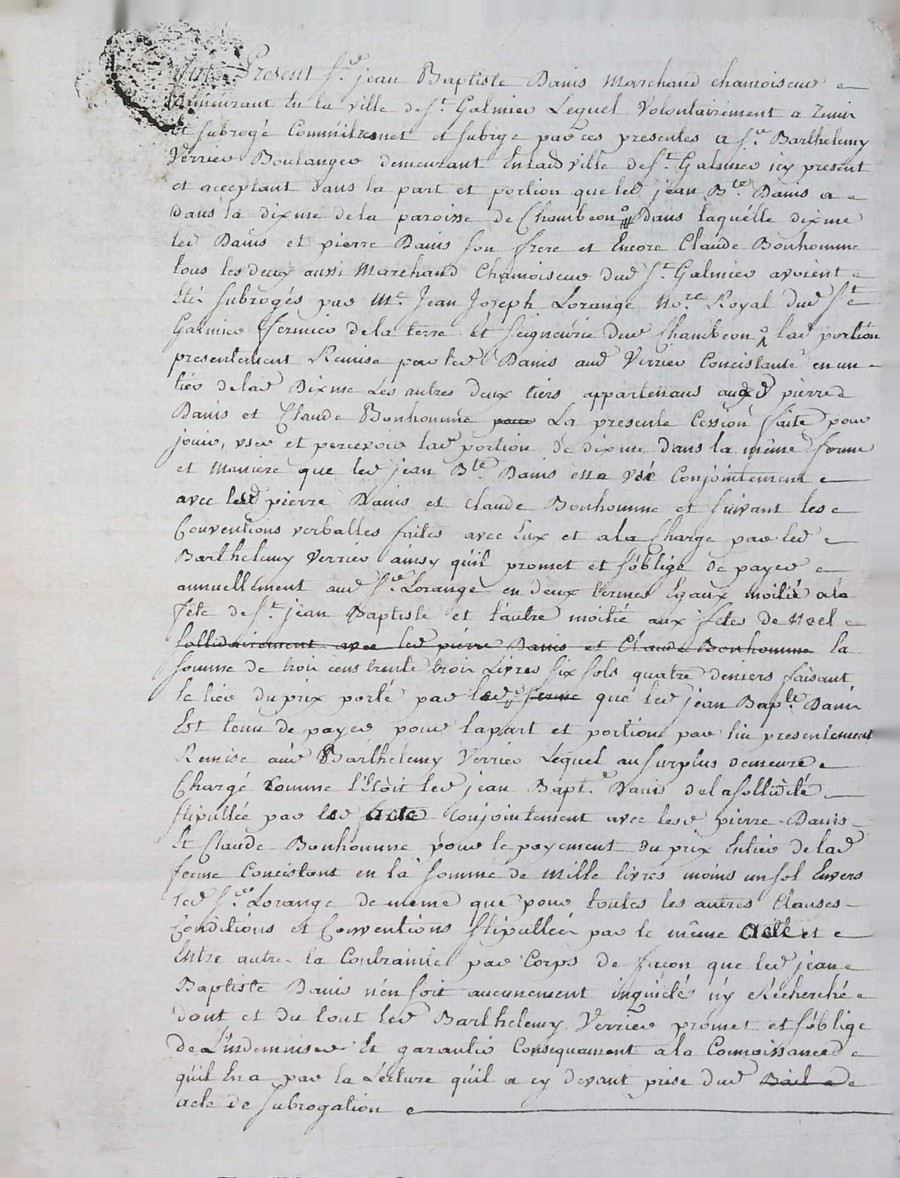 Present Sr. jean Baptiste Danis Marchand chamoiseur
demeurant En la ville de St. Galmier Lequel Volontairement a Remis
Et subrogé Comm'il remet et subroge par ces presentes a Sr. Barthelemy
Verrier Boulanger demeurant En lad ville de St. Galmier icy present
et acceptant dans la part et portion que led jean Bte. Danis a
dans la dixme de la paroisse de Chambeon dans laquelle dixme
led Danis et pierre Danis son frere et Encore Claude Bonhomme
tous les deux aussi Marchand Chamoiseur dud St. Galmier avoient
Eté subrogés par Me. Jean Joseph Lorange Nore. Royal dud St.
Galmier fermier de la terre et seigneurie dud Chambeon lad portion
presentement Remise par led Danis aud Verrier Concistante en un
tiers de lad Dixme Les autres deux tiers appartenans auxd pierre
Danis et Claude Bonhomme pour La presente Cession faite pour
jouir, user et percevoir lad portion de dixme dans la même forme
et Maniere que led jean Bte. Danis en a Usé Conjointement
avec lesd pierre Danis et Claude Bonhomme et suivant les
Conventions verballes faites avec Eux et a la Charge par led
Barthelemy Verrier ainsy qu'il promet et s'oblige de payer
annuellement aud Sr. Lorange en deux termes Egaux moitié a la
fête de St. jean Baptiste et l'autre moitié aux fêtes de Noel
sollidairement avec led pierre Danis et Claude Bonhomme la
somme de trois cens trente trois Livres six sols quatre deniers faisant
le tiers du prix porté par lad ferme que led jean Bapte. Danis
Est tenu de payer pour la part et portion par lui presentement
Remise aud Barthelemy Verrier Lequel au surplus demeure
Chargé comme l'Etoit led jean Bapt. Danis de la sollidité
stipullée par led acte conjointement avec lesd pierre Danis
Et Claude Bonhomme pour le payement du prix Entier de lad
ferme Concistant en la somme de Mille livres moins un sol Envers
led Sr. Lorange de meme que pour toutes les autres Clauses
Conditions et Conventions stipullées par le même acte et
Entre autre la Contrainte par Corps de façon que led jean
Baptiste Danis n'en soit aucunement inquieté n'y Recherché
dont et du tout led Barthelemy Verrier promet et s'oblige
de L'indemniser Et garantir Consequament a la Connoissance
qu'il En a par la Lecture qu'il a cy devant prise dud Bail de
acte de subrogation